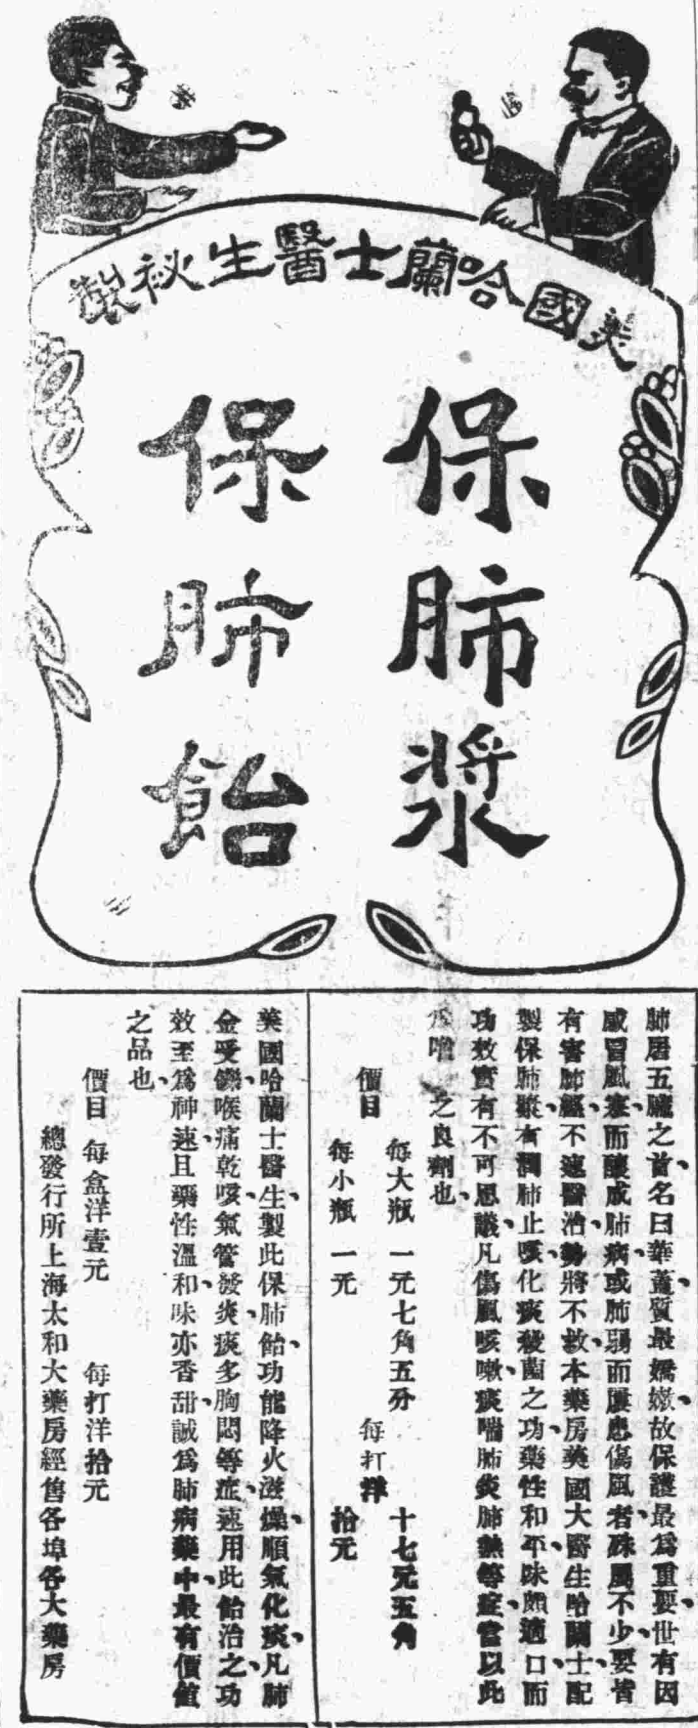 美國哈蘭士醫生秘製
保肺漿
保肺飴
肺居五臟之首名曰華蓋質最嬌嫩故保護最爲重要世有因
感冒風寒而釀成肺病或肺弱而屢患傷風者殊屬不少要皆
有害肺經不速醫治勢將不救本藥房美國大醫生哈蘭士配
製保肺漿有潤肺止咳化痰殺菌之功藥性和平味頗適口而
功效實有不可思議凡傷風咳嗽痰喘肺炎肺熱等症當以此
之良劑也
價目
每大瓶 一元七角五分
每小瓶 一元
每打洋
十七元五角
拾元
美國哈蘭士醫生製此保肺飴功能降火滋燥順氣化痰凡肺
金受傷喉痛乾咳氣管發炎痰多胸悶等症速用此飴治之功
效至爲神速且藥性溫和味亦香甜誠爲肺病藥中最有價值
之品也
價目 每盒洋壹元 每打洋拾元
總發行所上海太和大藥房經售各埠各大藥房